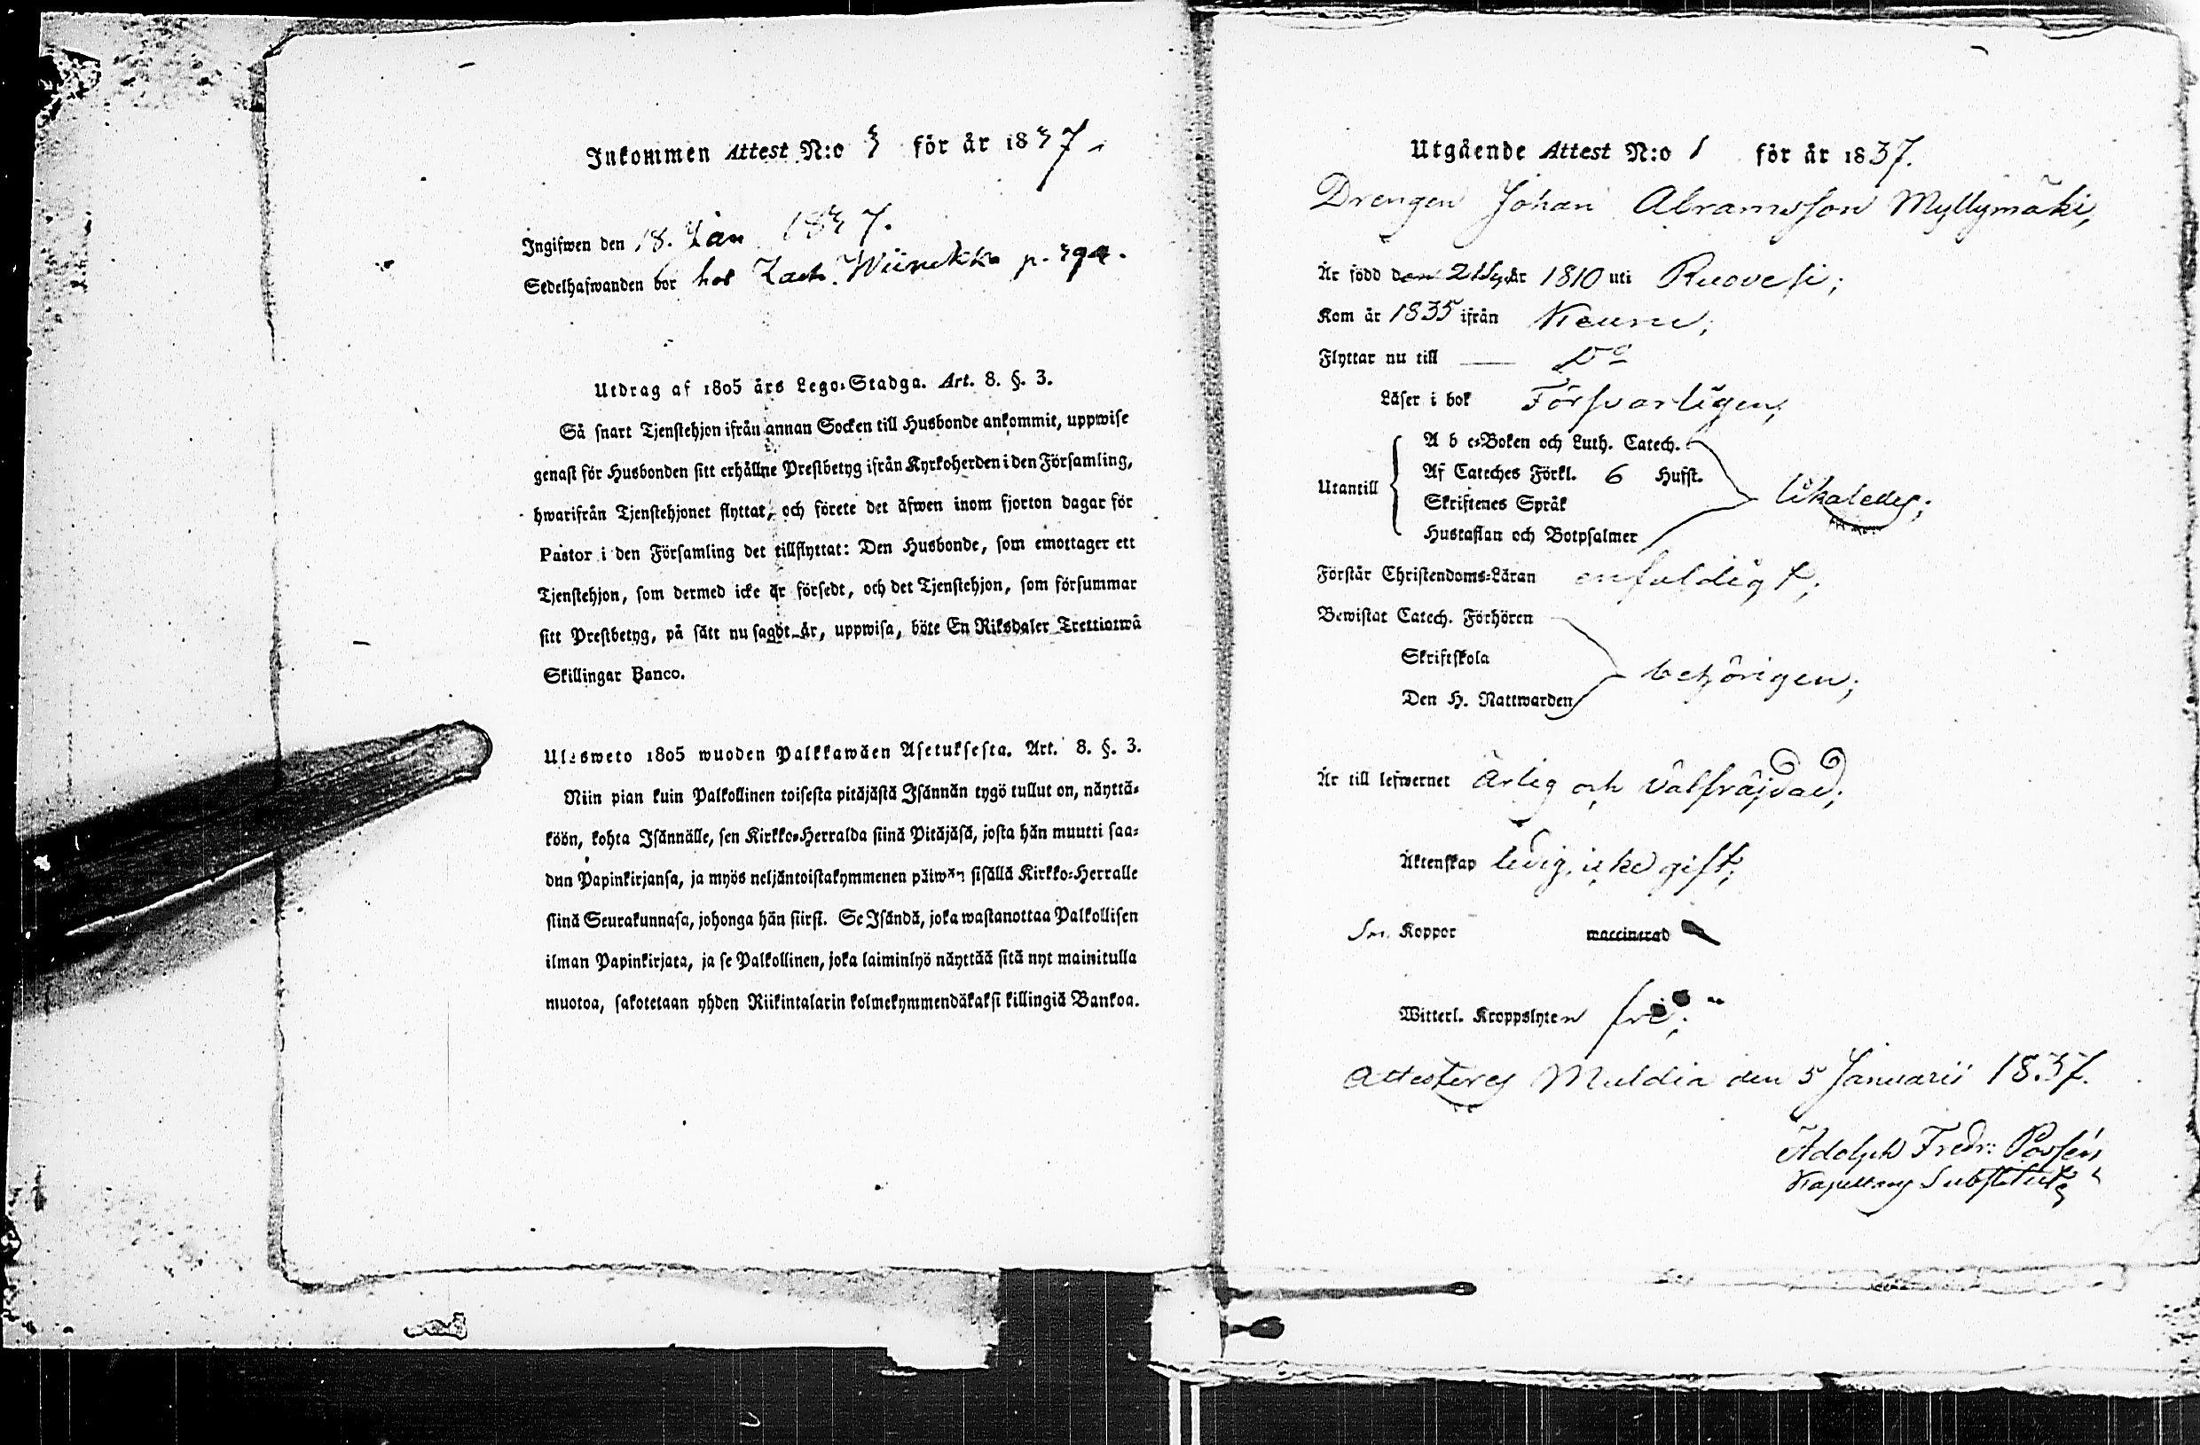 Inkommen Attest N:o 3 för år 1837.
Ingifwen den 18. Jan 1837.
Sedelhafwanden bor hos Zach. p.
Utdrag af 1805 års Lego-Stadga. Art. 8. §. 3.
Så snart Tjenstehjon ifrån annan Socken till Husbonde ankommit, uppwise
genast för Husbonden sitt erhållne Prestbetyg ifrån Kyrkoherden i den Församling,
hwarifrån Tjenstehjonet flyttat, och förete det äfwen inom fjorton dagar för
Pastor i den Församling det tillflyttat: Den Husbonde, som emottager ett
Tjenstehjon, som dermed icke är försedt, och det Tjenstehjon, som försummar
sitt Prestbetyg, på sätt nu sagdt är, uppwisa, böte En Riksdaler Trettiotwå
Skillingar Banco.
Ulosweto 1805 wuoden Palkkawäen Asetuksesta. Art. 8. §. 3.
Niin pian kuin Palkollinen toisesta pitäjästä Isännän tygö tullut on, näyttä-
köön, kohta Isännälle, sen Kirkko-Herralda siinä Pitäjäsä, josta hän muutti saa-
dun Papinkirjansa, ja myös neljäntoistakymmenen päiwän sisällä Kirkko-Herralle
siinä Seurakunnasa, johonga hän siirsi. Se Isändä, joka wastanottaa Palkollisen
ilman Papinkirjata, ja se Palkollinen, joka laiminlyö näyttää sitä nyt mainitulla
muotoa, sakotetaan yhden Riikintalarin kolmekymmendäkaksi killingiä Bankoa.
Utgående Attest N:o 1 för år 1837.
Drengen Johan Abramsson Myllymäki,
Är född den år 1810 uti Ruovesi;
Kom år 1835 ifrån Keuru;
Flyttar nu till Do
Läser i bok Försvarligen;
A b c-Boken och Luth. Catech.
Af Cateches Förkl. 6 Hufst.
Utantill
Skriftenes Språk
likaledes;
Hustaflan och Botpsalmer
Förstår Christendoms-Läran enfaldigt;
Bewistat Catech. Förhören
Skriftskola
behörigen;
Den H. Nattwarden
Är till lefwernet ärlig och välfräjdad;
Äktenskap ledig, icke gift;
Koppor waccinerad
Witterl. Kroppslyten fri;
Attesteras Muldia den 5 Januarii 1837.
Adolph Fredr: Possén
Kapellans Substitut